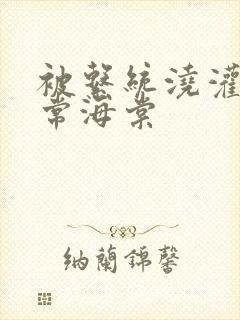 被繫統澆灌
常海棠
納蘭錦馨